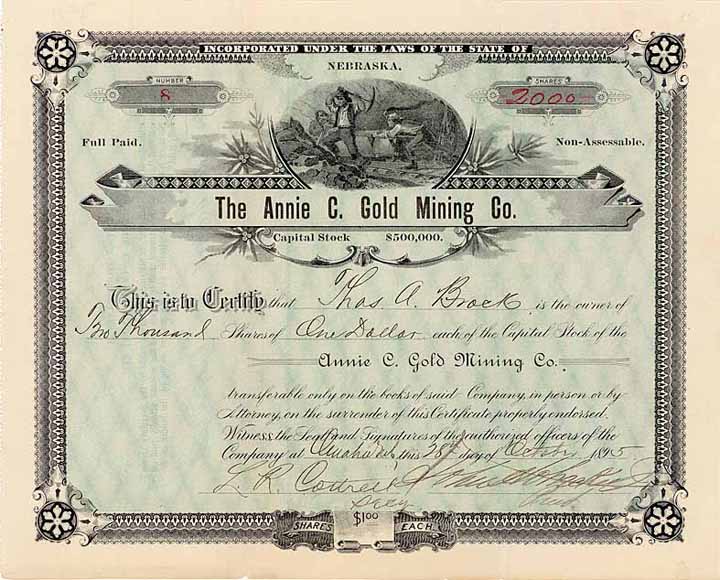 INCORPORATED UNDER THE LAWS OF THE STATE OF
NEBRASKA.
NUMBER
8
SHARES
2000
Full Paid.
Non-Assessable.
The Annie C. Gold Mining Co.
Capital Stock $500,000.
This is to Certify that Thos. A. Brock is the owner of
Two Thousand Shares of One Dollar each of the Capital Stock of the
Annie C. Gold Mining Co.
transferable only on the books of said Company, in person or by
Attorney, on the surrender of this Certificate properly endorsed.
Witness the Seal and Signatures of the authorized officers of the
Company at Omaha this 28 day of October 1895
L. R. Secy
SHARES $1.00 EACH.